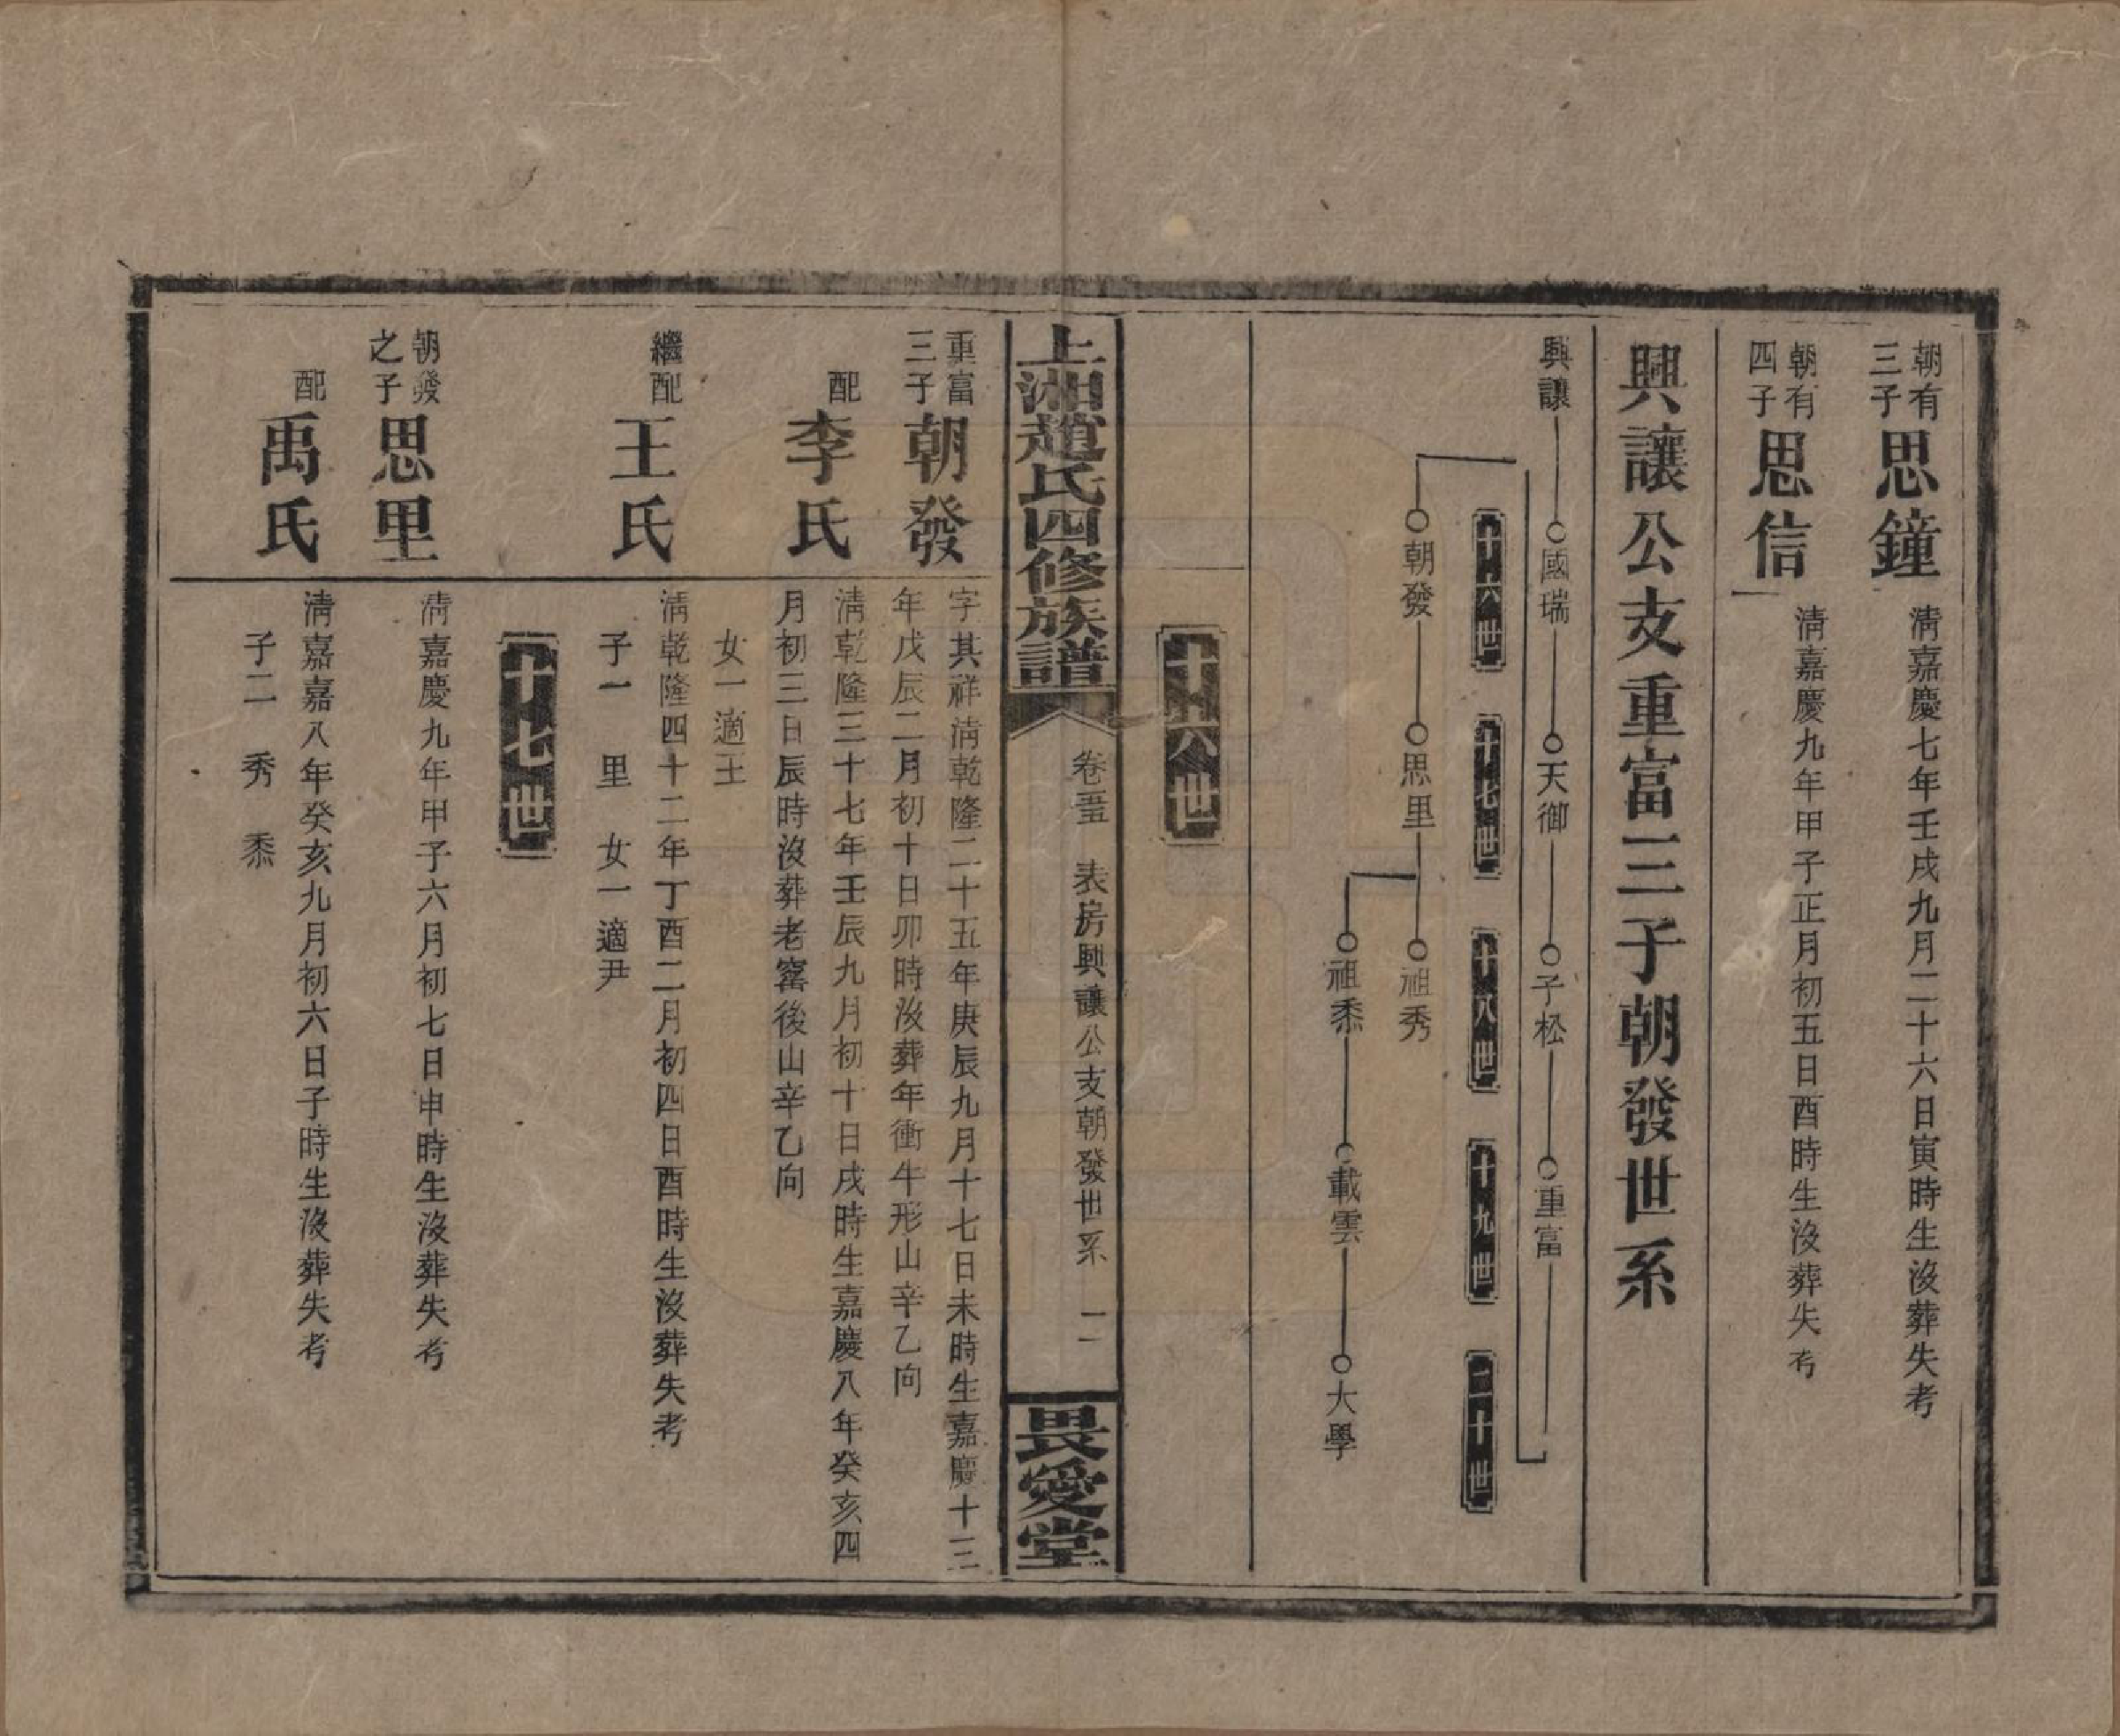 朝有三子思鐘 清嘉慶七年壬戌九月二十六日寅時生沒葬失考
朝有四子思信 清嘉慶九年甲子正月初五日酉時生沒葬失考
興讓公支重富三子朝發世系
興讓 國瑞 天御 子松 重富
十六世 十七世 十八世 十九世 二十世
朝發 思里 祖秀
祖黍 載雲 大學
十六世
上湘趙氏四修族譜 卷五 表房興讓公支朝發世系 二 畏愛堂
重富三子朝發 字其祥清乾隆二十五年庚辰九月十七日未時生嘉慶十三
年戊辰二月初十日卯時沒葬年衝牛形山辛乙向
配李氏 清乾隆三十七年壬辰九月初十日戌時生嘉慶八年癸亥四
月初三日辰時沒葬老窰後山辛乙向
女一適王
繼配王氏 清乾隆四十二年丁酉二月初四日酉時生沒葬失考
子一 里 女一適尹
十七世
朝發之子思里 清嘉慶九年甲子六月初七日申時生沒葬失考
配禹氏 清嘉嘉八年癸亥九月初六日子時生沒葬失考
子二 秀 黍